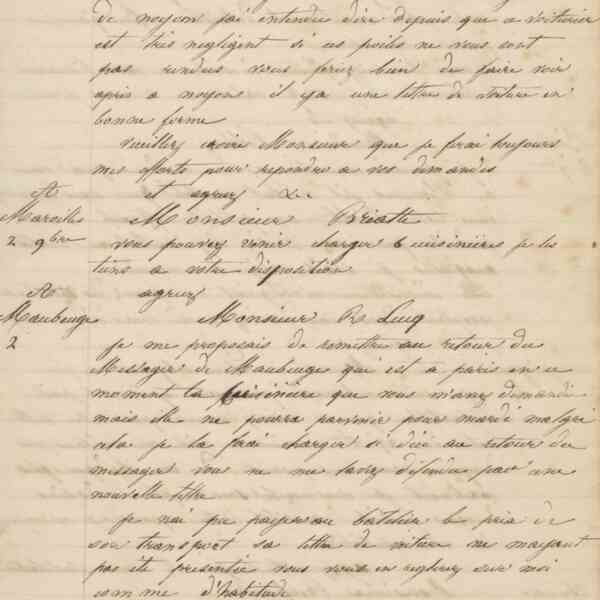 de noyon j'ai entendu dire depuis que ce voiturier
est très negligent si ces poiles ne vous sont
pas rendus vous feriez bien de faire voir
après a noyons il y a une lettre de voiture en
bonne forme
Veuillez croire Monsieur que je ferai toujours
mes efforts pour repondre a vos demandes
et agreez &c
A
Maroilles
2 9bre
Monsieur Briatte
vous pouvez venir charger 6 cuisinières je les
tiens a votre disposition
agreez
A
Maubeuge
2
Monsieur R Lucq
Je me proposais de remettre au retour du
Messager de Maubeuge qui est a paris en ce
moment la Cuisinière que vous m'avez demandé
mais elle ne pourra parvenir pour mardi malgré
cela je la ferai charger si d'ici au retour du
messager vous ne me l'avez défendu par une
nouvelle lettre
Je n'ai pu payer au batelier le prix de
son transport sa lettre de voiture ne m'ayant
pas été presentée vous vous en reglerez sur moi
comme d'habitude